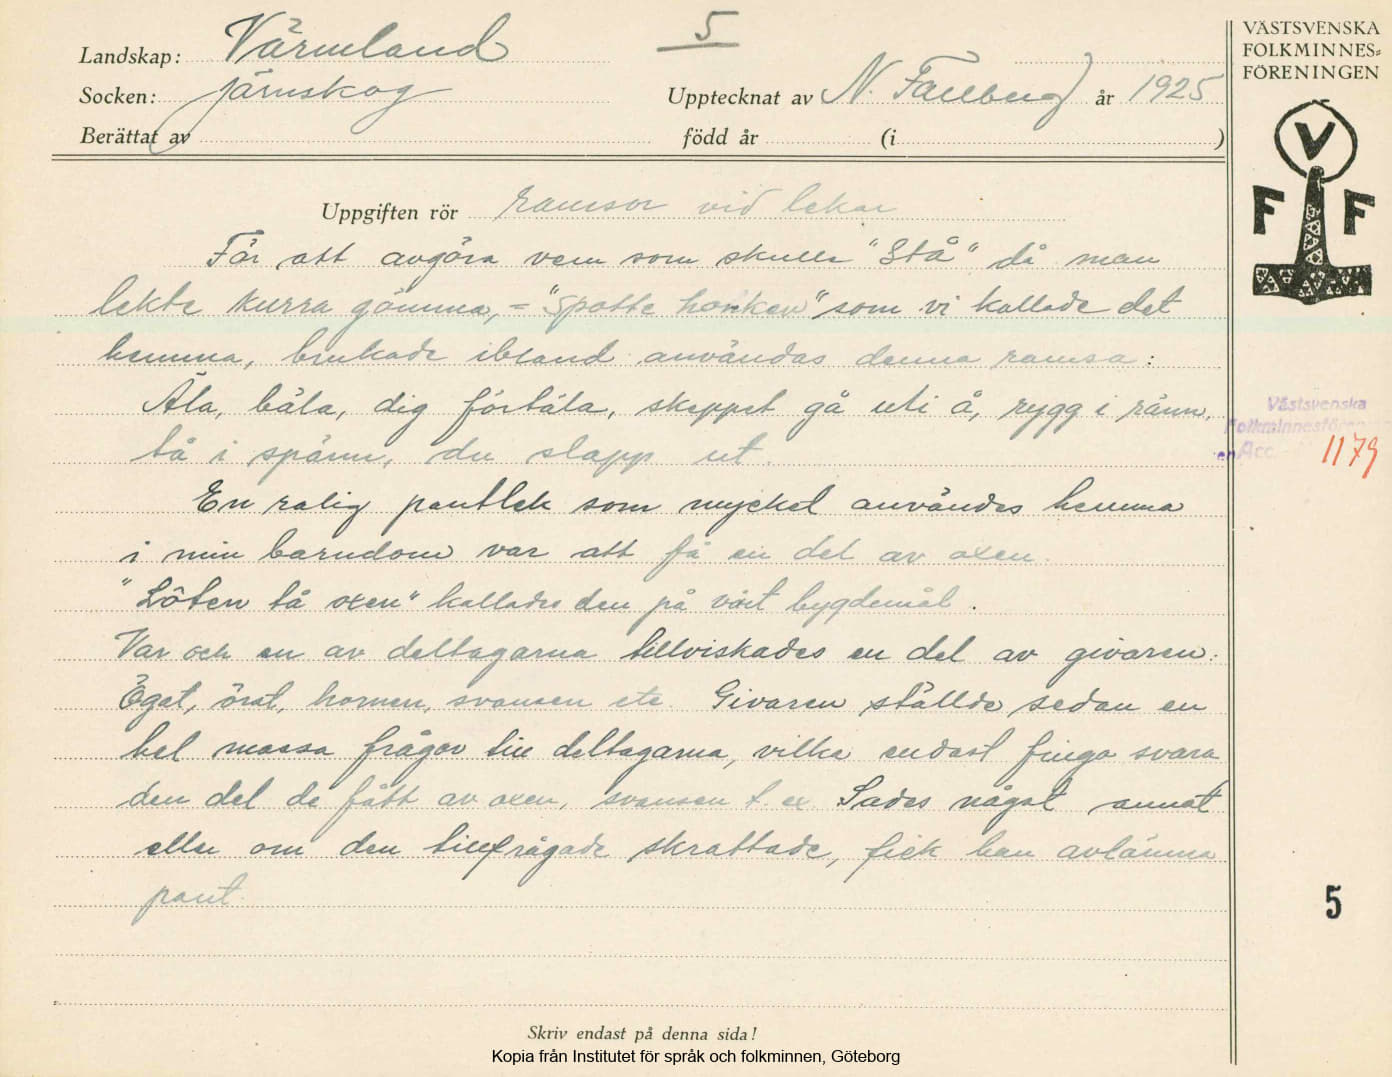 5
VÄSTSVENSKA
FOLKMINNES=
FÖRENINGEN
Landskap: Värmland
Socken: järnskog
Upptecknat av N. år 1925
Berättat av
född år (i )
V
F F
Uppgiften rör ramsor vid lekar
För att avgöra vem som skulle "Stå" då man
lekte kurra gömma, = "spotte honken" som vi kallade det
hemma, brukade ibland användas denna ramsa:
Äla, bäla, dig förtäla, skeppet gå uti å, rygg i ränn,
tå i spänn, du slapp ut.
En rolig pantlek som mycket användes hemma
i min barndom var att få en del av oxen.
"Löten tå oxen" kallades den på vårt bygdemål.
Var och en av deltagarna tillviskades en del av givaren:
Ögat, örat, hornen, svansen etc. Givaren ställde sedan en
hel massa frågor till deltagarna, vilka endast fingo svara
den del de fått av oxen, svansen t. ex. Sades något annat
eller om den tillfrågade skrattade, fick han avlämna
pant.
Västsvenska
Folkminnesfören
en Acc. 1179
5
Skriv endast på denna sida!
Kopia från Institutet för språk och folkminnen, Göteborg